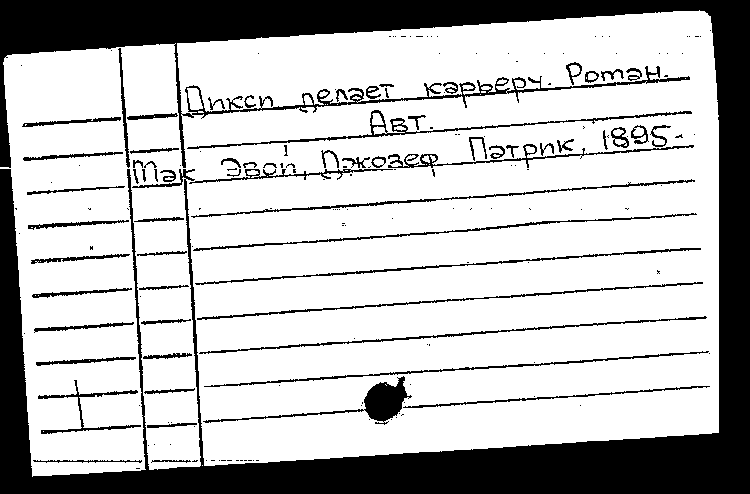 Дикси делает карьеру. Роман.
Авт.
Мак Эвой, Джозеф Патрик, 1895-